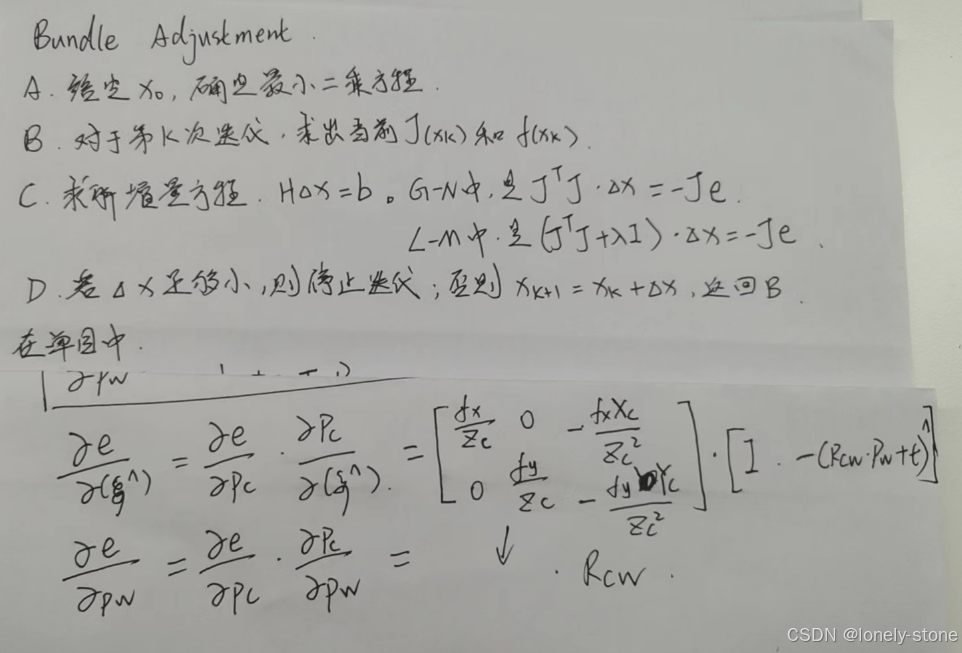 Bundle Adjustment.
A. 给定 x₀, 确定最小二乘方程.
B. 对于第K次迭代, 求出当前 J(xk) 和 f(xk).
C. 求解增量方程. HΔx = b。G-N中, 是 JᵀJ·Δx = -Je.
L-M中, 是 (JᵀJ+λI)·Δx = -Je.
D. 若 Δx 足够小, 则停止迭代; 否则 xk+1 = xk + Δx, 返回B.
在单目中.
∂Pw
∂e/∂(ξ^) = ∂e/∂Pc · ∂Pc/∂(ξ^) = [fx/Zc 0 -fxXc/Zc²; 0 fy/Zc -fyYc/Zc²] · [I, -(Rcw·Pw+t)^]
∂e/∂Pw = ∂e/∂Pc · ∂Pc/∂Pw = ↓ · Rcw.
CSDN @lonely-stone